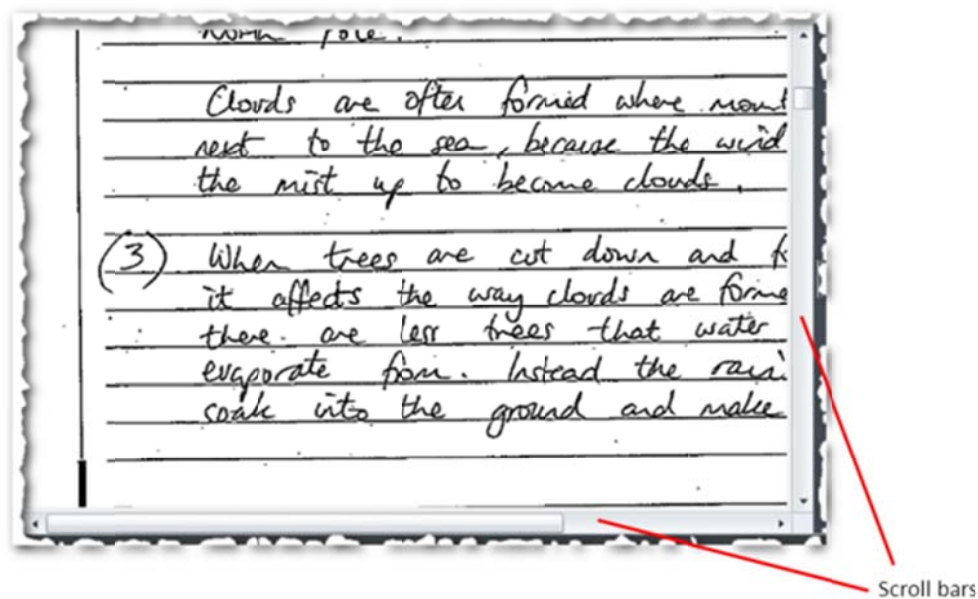 North Pole.
Clouds are often formed where mount
next to the sea, because the wind
the mist up to become clouds.
(3) When trees are cut down and fo
it affects the way clouds are forme
there are less trees that water
evaporate from. Instead the rain
soak into the ground and make
Scroll bars